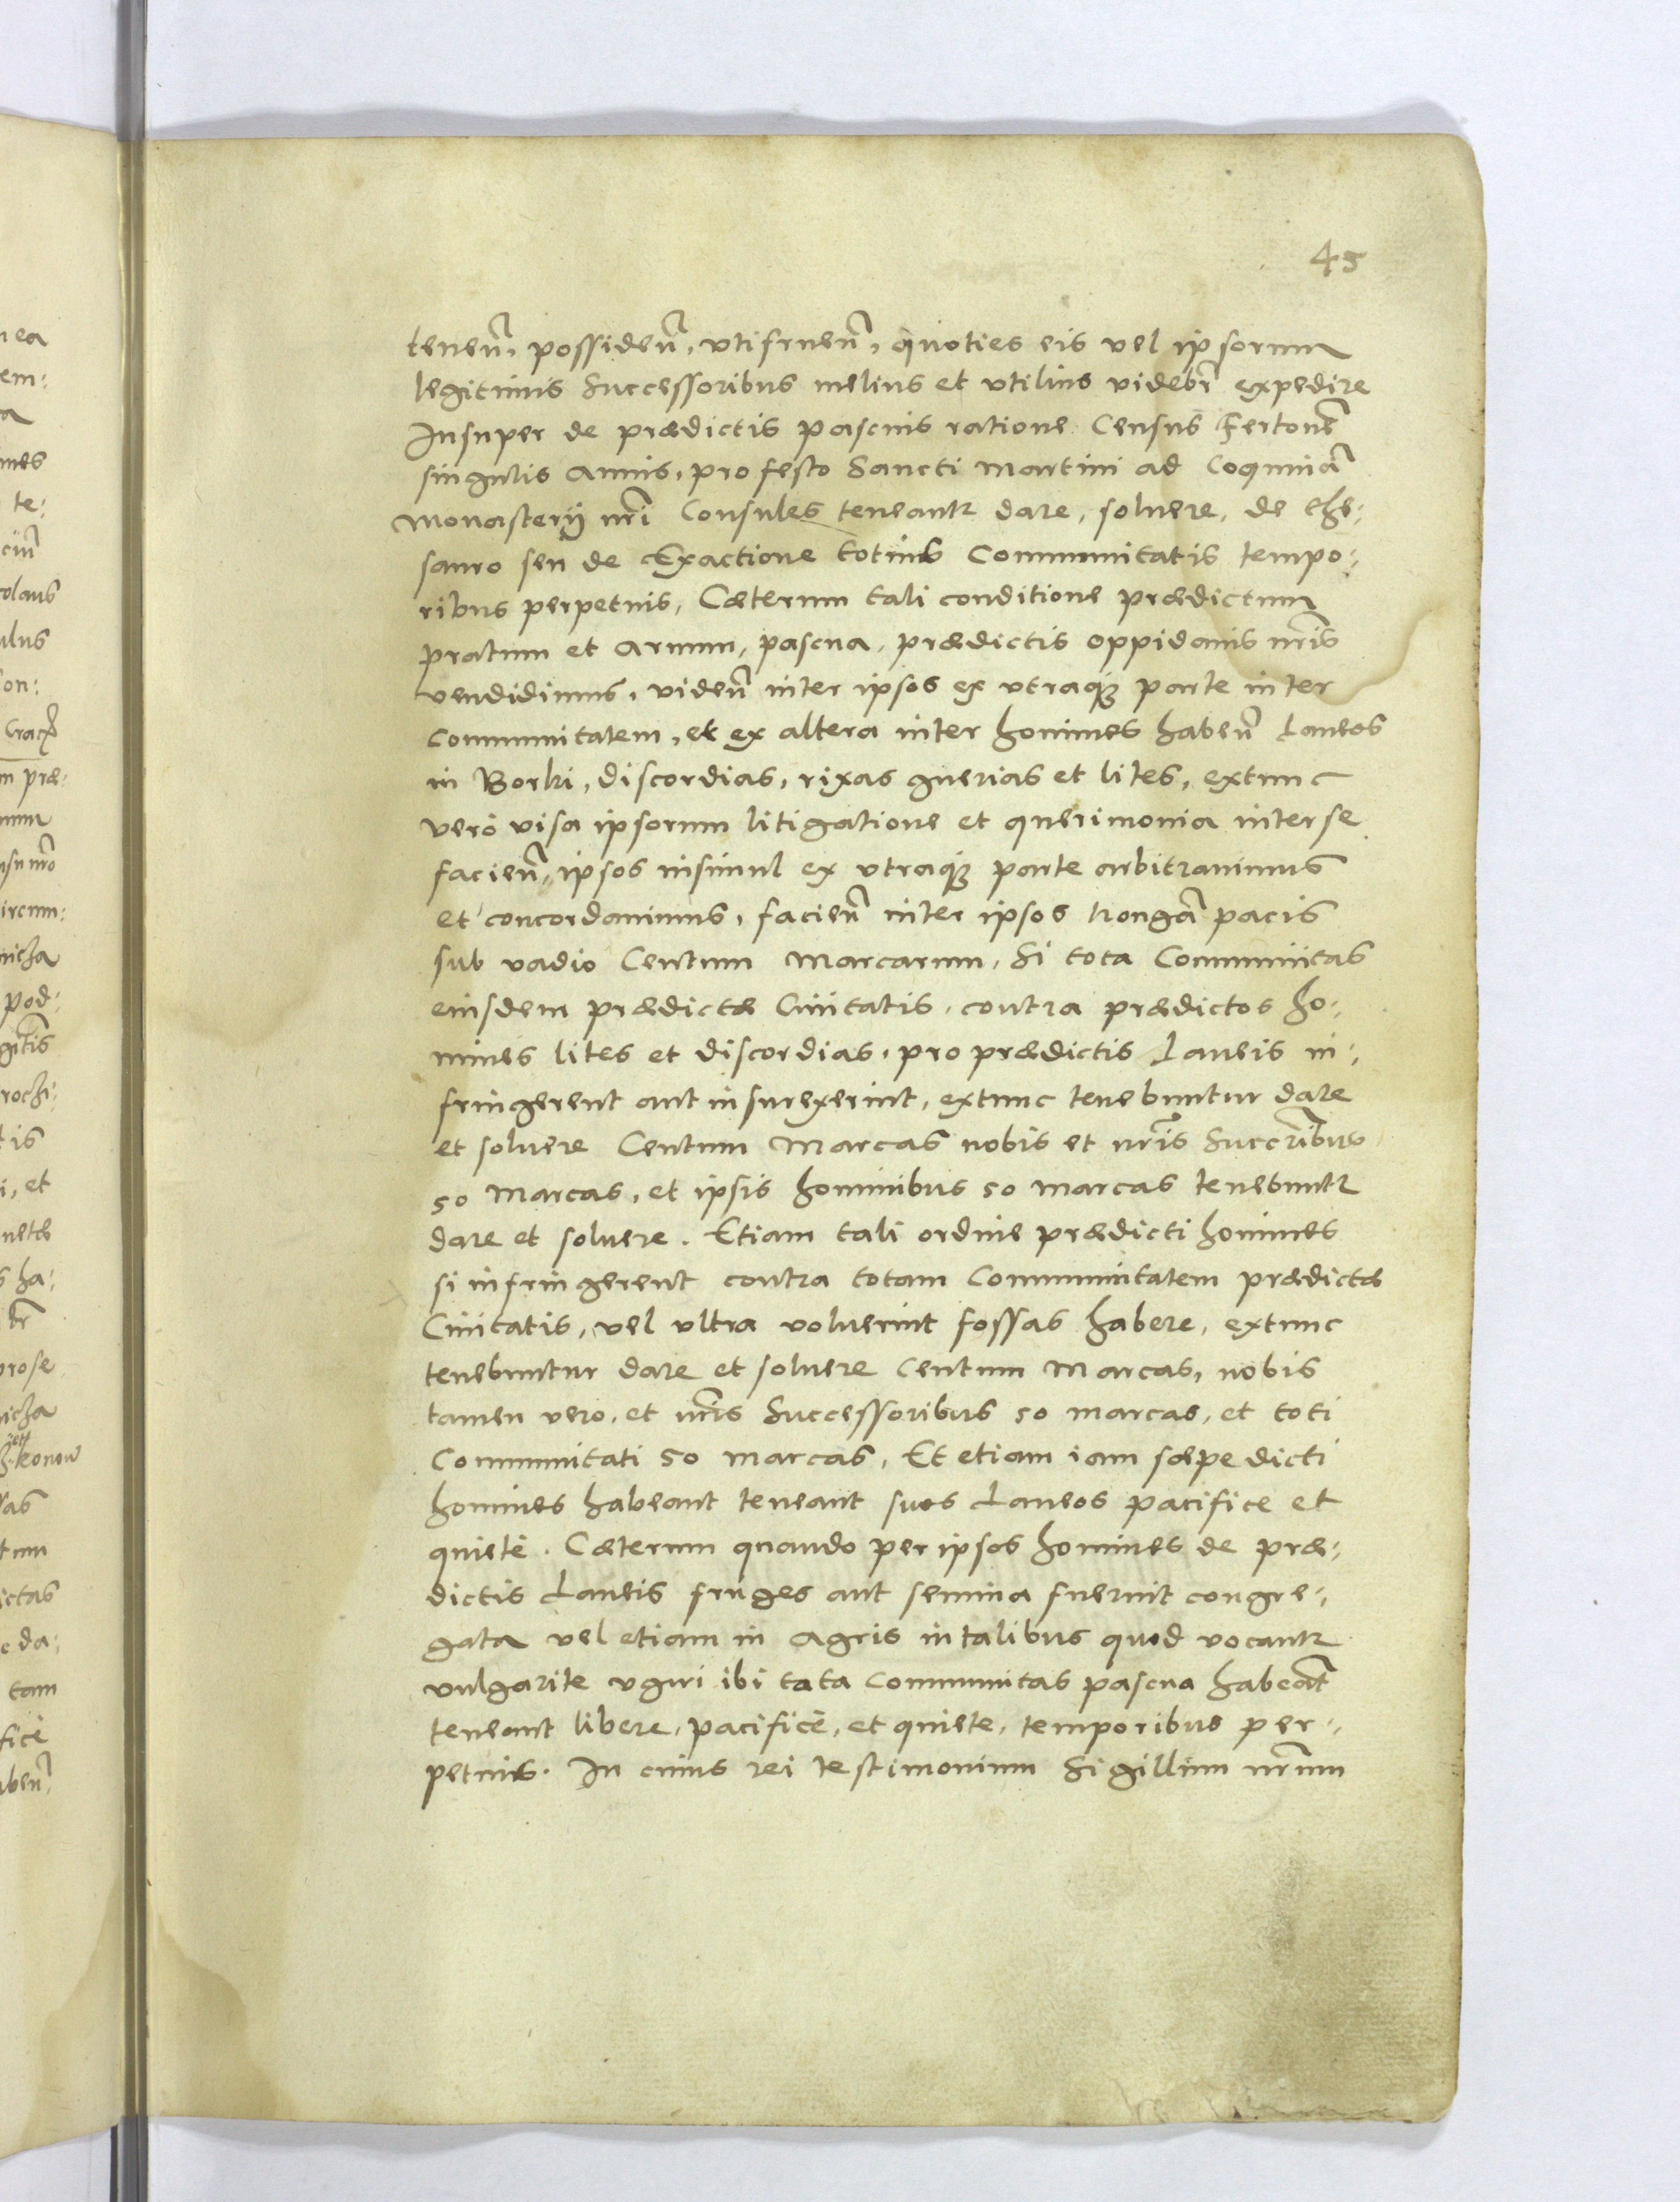 45
teneñ, possideñ, vtifrueñ, quoties eis vel ipsorum
legitimis Successoribus melius et vtilius videbr̃ expedire
Insuper de prædictis pascuis ratione Census Fertonẽ
singulis annis, pro festo Sancti Martini ad Coquinã
Monasterij nr̃i Consules teneantr dare, soluere, de the:
sauro seu de Exactione totius Communitatis tempo:
ribus perpetuis, Cæterum tali conditione prædictum
pratum et aruum, pascua, prædictis oppidanis nr̃is
vendidimus, videñ inter ipsos ex vtraq; parte inter
Communitatem, et ex altera inter homines habeñ Laneos
in Borki, discordias, rixas guerias et lites, extunc
verò visa ipsorum litigatione et querimonia inter se
facieñ, ipsos insimul ex vtraq; parte arbitrauimus
et concordauimus, facieñ inter ipsos trongã pacis
sub vadio Centum Marcarum, Si tota Communitas
eiusdem prædictæ Ciuitatis, contra prædictos ho:
mines lites et discordias, pro prædictis Laneis in:
fringerent aut insurexerint, extunc tenebuntur dare
et soluere Centum Marcas nobis et nr̃is Succr̃ibus
50 Marcas, et ipsis hominibus 50 marcas tenebuntr
dare et soluere. Etiam tali ordine prædicti homines
si infringerent contra totam Communitatem prædictæ
Ciuitatis, vel vltra voluerint fossas habere, extunc
tenebuntur dare et soluere Centum Marcas, nobis
tamen vero, et nr̃is Successoribus 50 marcas, et toti
Communitati 50 marcas, Et etiam iam sæpe dicti
homines habeant teneant suos Laneos pacifice et
quietè. Cæterum quando per ipsos homines de præ:
dictis Laneis fruges aut semina fuerint congre:
gata vel etiam in Agris in talibus quod vocantr
vulgarite vguri ibi tata Communitas pascua habeãt
teneant libere, pacificè, et quiete, temporibus per:
petuis. In cuius rei testimonium Sigillum nr̃um